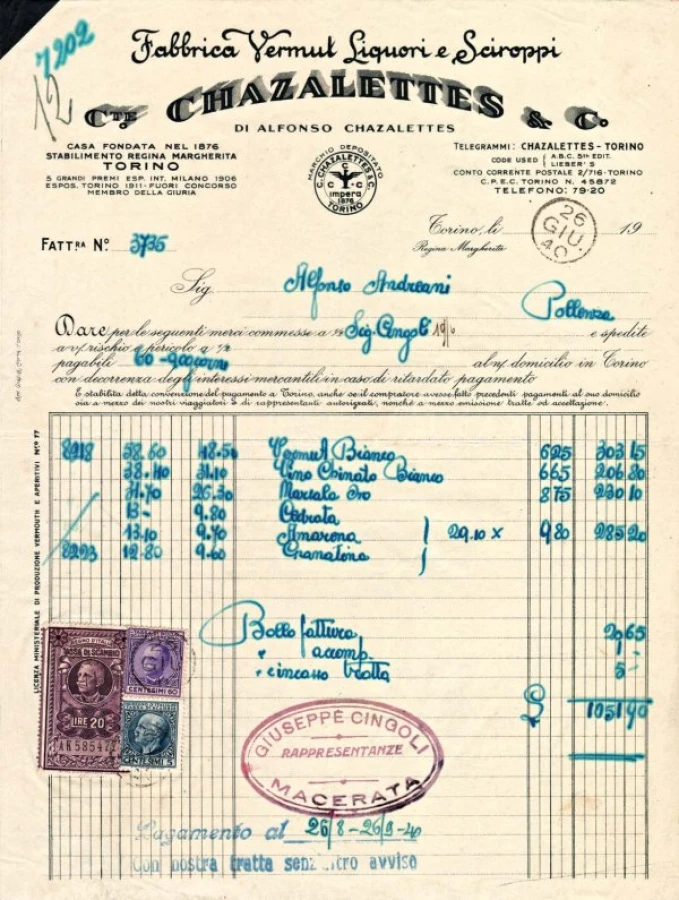 7202
12
Fabbrica Vermut Liquori e Sciroppi
CTE. CHAZALETTES & C.
DI ALFONSO CHAZALETTES
CASA FONDATA NEL 1876
STABILIMENTO REGINA MARGHERITA
TORINO
5 GRANDI PREMI ESP. INT. MILANO 1906
ESPOS. TORINO 1911-FUORI CONCORSO
MEMBRO DELLA GIURIA
MARCHIO DEPOSITATO
C. CHAZALETTES & C.
C C
impera
1876
TORINO
TELEGRAMMI: CHAZALETTES - TORINO
CODE USED { A.B.C. 5TH EDIT.
LIEBER'S
CONTO CORRENTE POSTALE 2/716-TORINO
C.P.E.C. TORINO N. 45872
TELEFONO: 79-20
Torino, li 26 GIU. 40 19
Regina Margherita
FATT.RA N.° 3735
Sig. Alfonso Andreani
Pollenza
Dare per le seguenti merci commesse a 1/2 Sig. Cingoli 19/6 e spedite
a v/ rischio e pericolo a 1/2
pagabili 60-90 giorni al n/ domicilio in Torino
con decorrenza degli interessi mercantili in caso di ritardato pagamento
È stabilita detta convenzione del pagamento a Torino, anche se il compratore avesse fatto precedenti pagamenti al suo domicilio
sia a mezzo dei nostri viaggiatori e di rappresentanti autorizzati, nonchè a mezzo emissione tratte od accettazione.
LICENZA MINISTERIALE DI PRODUZIONE VERMOUTH E APERITIVI N.ro 77
8218 58.60 48.50 Vermut Bianco 625 303 15
38.40 31.10 Vino Chinato Bianco 665 206 80
31.70 26.30 Marsala Oro 875 230 10
13- 9.80 Cedrata
13.10 9.70 Amarena } 29.10 x 9 80 285 20
8223 12.80 9.60 Granatina
Bollo fattura 20 65
" accomp. 1 -
" incasso tratta 5 -
£ 1051 90
TASSA DI SCAMBIO
LIRE 20
CENTESIMI 50
CENTESIMI 5
GIUSEPPE CINGOLI
RAPPRESENTANZE
MACERATA
Pagamento al 26/8-26/9-40
Con nostra tratta senz'altro avviso